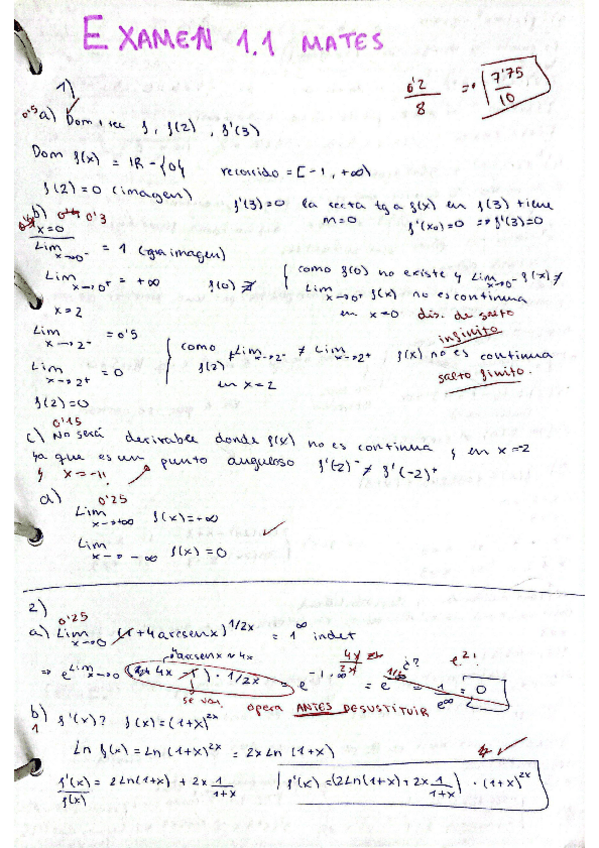 EXAMEN 1.1 MATES
1)
0'2/8 => 7'75/10
0'5 a) Dom, rec f, f(2), f'(3)
Dom f(x) = ℝ - {0} recorrido = [-1, +∞)
f(2) = 0 (imagen) f'(3)=0 la recta tg a f(x) en f(3) tiene
m=0. f'(x₀)=0 => f'(3)=0
b) 0'3
x=0
Lim x→0⁻ = 1 (ya imagen)
Lim x→0⁺ = +∞ f(0) ∄ { como f(0) no existe y Lim x→0⁻ f(x) ≠
Lim x→0⁺ f(x) no es continua
en x=0 dis. de salto
infinito
x=2
Lim x→2⁻ = 0'5
Lim x→2⁺ = 0 { como Lim x→2⁻ ≠ Lim x→2⁺ f(x) no es continua
f(2) en x=2 salto finito.
f(2)=0
0'15
c) No será derivable donde f(x) no es continua y en x=-2
ya que es un punto anguloso f'(-2)⁻ ≠ f'(-2)⁺
y x=-11
d) 0'25
Lim x→+∞ f(x)=+∞
Lim x→-∞ f(x)=0
2)
0'25
a) Lim x→0 (1+4arcsenx)^1/2x = 1^∞ indet
4arcsenx ≈ 4x
=> e^Lim x→0 (1+4x-1)·1/2x = e^-1·∞ = e = 1/e^∞ = 0
4x/2x ¿? e²!
se van. opera ANTES DE SUSTITUIR
b) f'(x)? f(x)=(1+x)^2x
1
Ln f(x) = Ln (1+x)^2x = 2x Ln (1+x)
f'(x)/f(x) = 2Ln(1+x) + 2x 1/1+x f'(x) = (2Ln(1+x)+2x 1/1+x) · (1+x)^2x